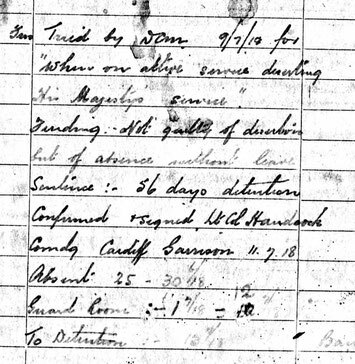 Tried by DCM 9/7/18 for
"When on active service deserting
His Majestys service".
Finding :- Not guilty of desertion
but of absence without leave
Sentence :- 56 days detention
Confirmed & signed Lt Col Handcock
Comdg Cardiff Garrison 11.7.18
Absent 25 - 30/6/18
Guard Room :- 1/7/18 - 12
To Detention :